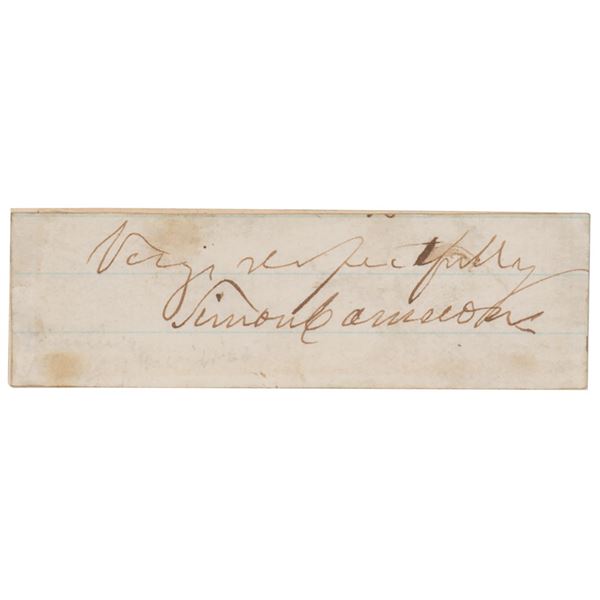 Very respectfully
Simon Cameron